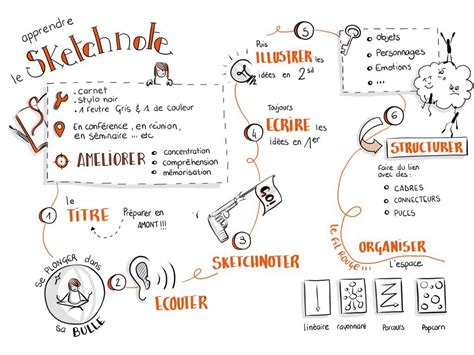 apprendre
le SKetchnote
. carnet
. stylo noir
. 1 feutre Gris & 1 de couleur
. En conférence, en réunion,
en séminaire ... etc
AMELIORER
. concentration
. compréhension
. mémorisation
1
le
TITRE
Préparer en
AMONT!!!
se PLONGER dans
sa BULLE
2
ECOUTER
3
GO!
SKETCHNOTER
4
Toujours
ECRIRE les
idées en 1er
5
Puis
ILLUSTRER les
idées en 2sd
. Objets
. Personnages
. Emotions
. ...
6
STRUCTURER
Faire du lien
avec des :
. CADRES
. CONNECTEURS
. PUCES
le FIL ROUGE...
ORGANISER
L'espace
linéaire
rayonnant
Parcours
Popcorn